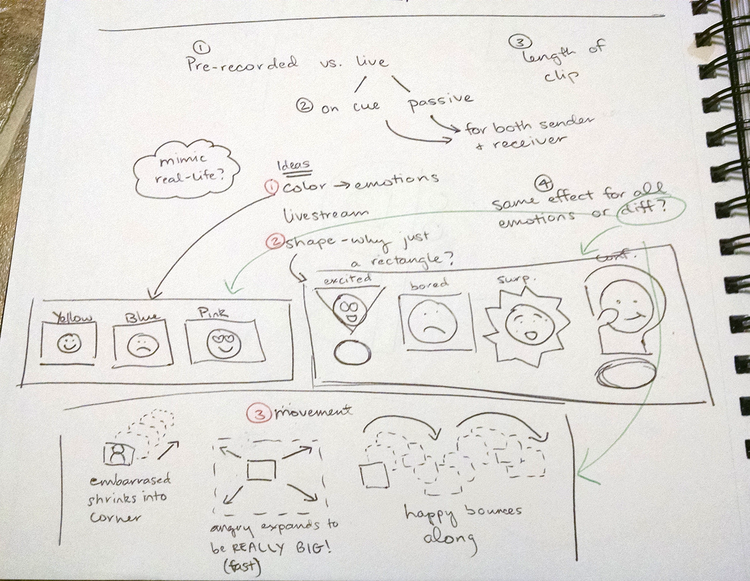 ①
Pre-recorded vs. live
② on cue passive
for both sender
+ receiver
③
length of
clip
mimic
real-life?
Ideas
① color → emotions
livestream
② shape - why just
a rectangle?
④
same effect for all
emotions or diff?
Yellow Blue Pink
excited bored surp. conf.
③ movement
embarrased
shrinks into
corner
angry expands to
be REALLY BIG!
(fast)
happy bounces
along